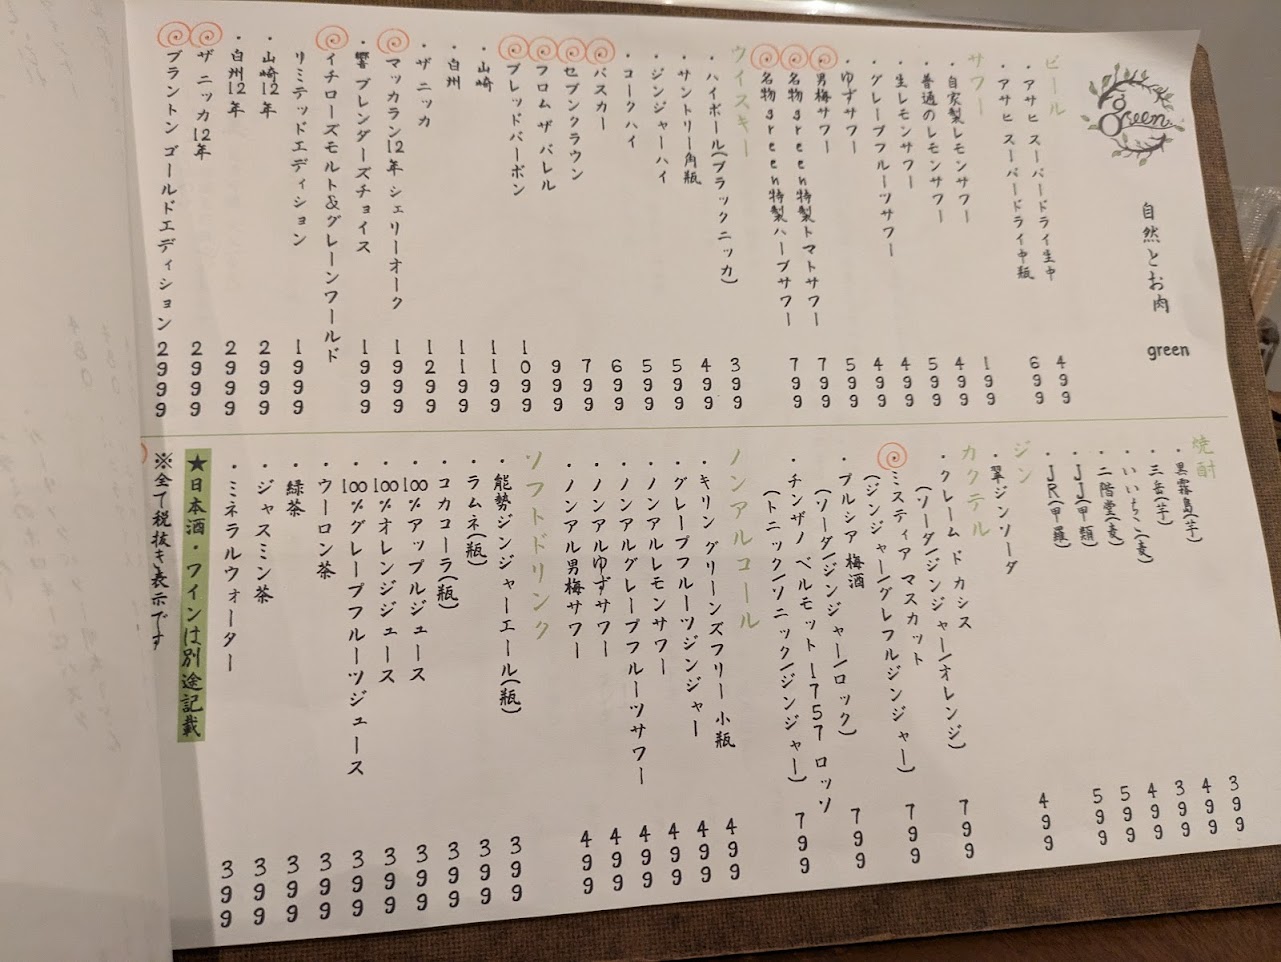 green
自然とお肉 green
ビール
・アサヒ スーパードライ生中 499
・アサヒ スーパードライ中瓶 699
サワー
・自家製レモンサワー 199
・普通のレモンサワー 499
・生レモンサワー 599
・グレープフルーツサワー 499
・ゆずサワー 499
男梅サワー 599
名物green特製トマトサワー 799
名物green特製ハーブサワー 799
ウイスキー
・ハイボール(ブラックニッカ) 399
・サントリー角瓶 499
・ジンジャーハイ 599
・コークハイ 599
バスカー 699
セブンクラウン 799
フロム ザ バレル 999
ブレッドバーボン 1099
・山崎 1199
・白州 1199
・ザ ニッカ 1299
マッカラン12年 シェリーオーク 1999
・響 ブレンダーズチョイス 1999
イチローズモルト&グレーンワールド
リミテッドエディション 1999
・山崎12年 2999
・白州12年 2999
ザ ニッカ12年 2999
ブラントン ゴールドエディション 2999
焼酎
・黒霧島(芋) 399
・三岳(芋) 499
・いいちこ(麦) 399
・二階堂(麦) 499
・JJ(甲類) 599
・JR(甲羅) 599
ジン
・翠ジンソーダ 499
カクテル
・クレーム ド カシス
(ソーダ/ジンジャー/オレンジ) 799
ミスティア マスカット
(ジンジャー/グレフルジンジャー) 799
・プルシア 梅酒
(ソーダ/ジンジャー/ロック) 799
・チンザノ ベルモット1757 ロッソ
(トニック/ソニック/ジンジャー) 799
ノンアルコール
・キリン グリーンズフリー 小瓶 499
・グレープフルーツジンジャー 499
・ノンアルレモンサワー 499
・ノンアルグレープフルーツサワー 499
・ノンアルゆずサワー 499
・ノンアル男梅サワー 499
ソフトドリンク
・能勢ジンジャーエール(瓶) 399
・ラムネ(瓶) 399
・コカコーラ(瓶) 399
・100%アップルジュース 399
・100%オレンジジュース 399
・100%グレープフルーツジュース 399
・ウーロン茶 399
・緑茶 399
・ジャスミン茶 399
・ミネラルウォーター 399
★日本酒・ワインは別途記載
※全て税抜き表示です